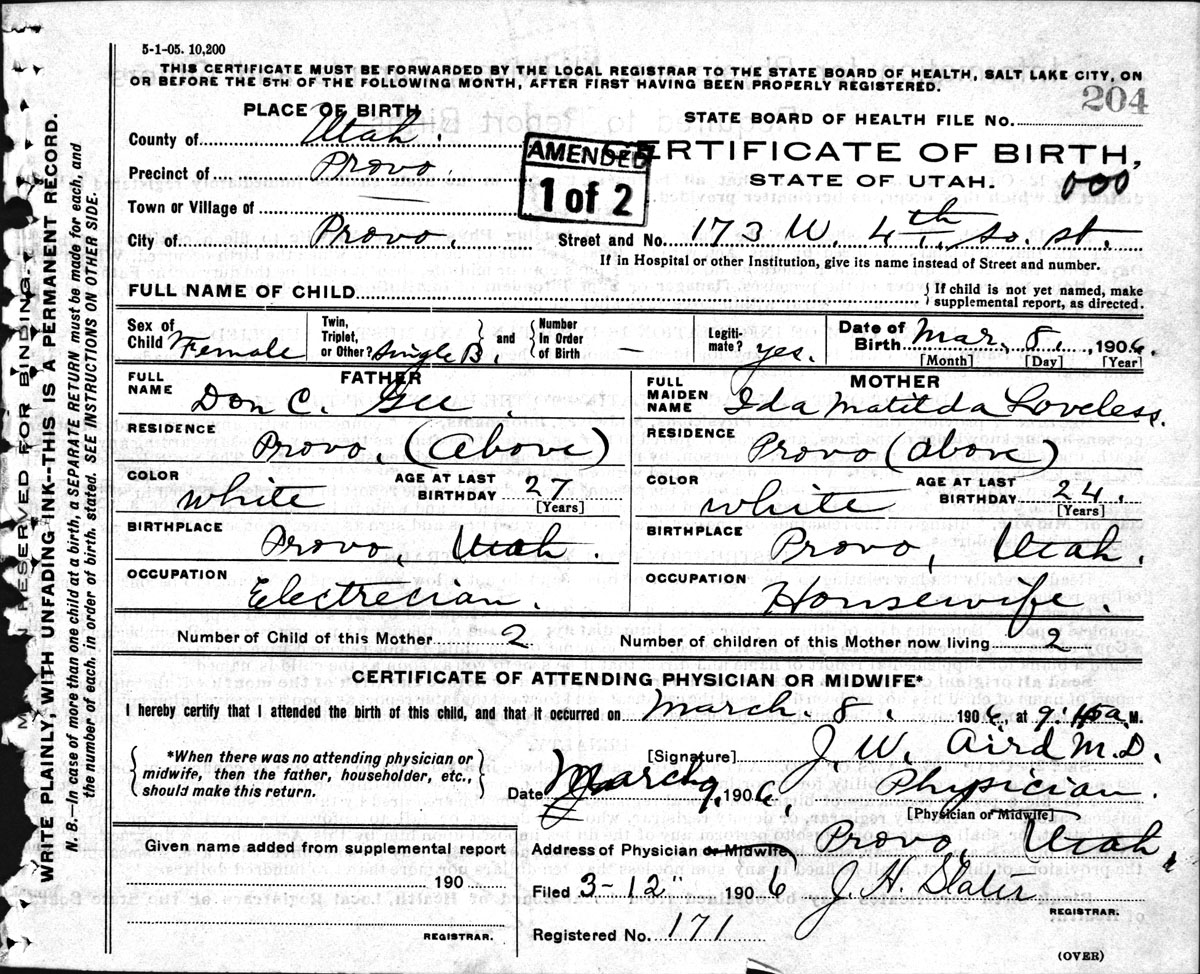 5-1-05. 10,200
THIS CERTIFICATE MUST BE FORWARDED BY THE LOCAL REGISTRAR TO THE STATE BOARD OF HEALTH, SALT LAKE CITY, ON
OR BEFORE THE 5TH OF THE FOLLOWING MONTH, AFTER FIRST HAVING BEEN PROPERLY REGISTERED.
204
PLACE OF BIRTH
STATE BOARD OF HEALTH FILE NO.
County of Utah.
AMENDED
1 of 2
CERTIFICATE OF BIRTH,
Precinct of Provo.
STATE OF UTAH. 000
Town or Village of
City of Provo. Street and No. 173 W. 4th So. St.
If in Hospital or other Institution, give its name instead of Street and number.
FULL NAME OF CHILD { If child is not yet named, make
supplemental report, as directed.
Sex of Child Female Twin, Triplet, or Other? Single B. } and { Number In Order of Birth — Legiti-mate? yes. Date of Birth Mar. 8., 1906.
[Month] [Day] [Year]
FATHER
FULL NAME Don C. Gee.
MOTHER
FULL MAIDEN NAME Ida Matilda Loveless.
RESIDENCE Provo (Above)
RESIDENCE Provo (above)
COLOR White AGE AT LAST BIRTHDAY 27 [Years]
COLOR White AGE AT LAST BIRTHDAY 24. [Years]
BIRTHPLACE Provo, Utah.
BIRTHPLACE Provo, Utah.
OCCUPATION Electrecian.
OCCUPATION Housewife.
Number of Child of this Mother 2 Number of children of this Mother now living 2
CERTIFICATE OF ATTENDING PHYSICIAN OR MIDWIFE*
I hereby certify that I attended the birth of this child, and that it occurred on March. 8., 1906, at 9: a M.
{ *When there was no attending physician or
midwife, then the father, householder, etc.,
should make this return. }
[Signature] J. W. Aird M.D.
Date March 9, 1906, Physician.
[Physician or Midwife]
Given name added from supplemental report
190
REGISTRAR.
Address of Physician or Midwife Provo, Utah.
Filed 3-12 1906 J. H. Slater
REGISTRAR.
Registered No. 171
(OVER)
RESERVED FOR BINDING.
WRITE PLAINLY, WITH UNFADING INK--THIS IS A PERMANENT RECORD.
N. B.—In case of more than one child at a birth, a SEPARATE RETURN must be made for each, and
the number of each, in order of birth, stated. SEE INSTRUCTIONS ON OTHER SIDE.